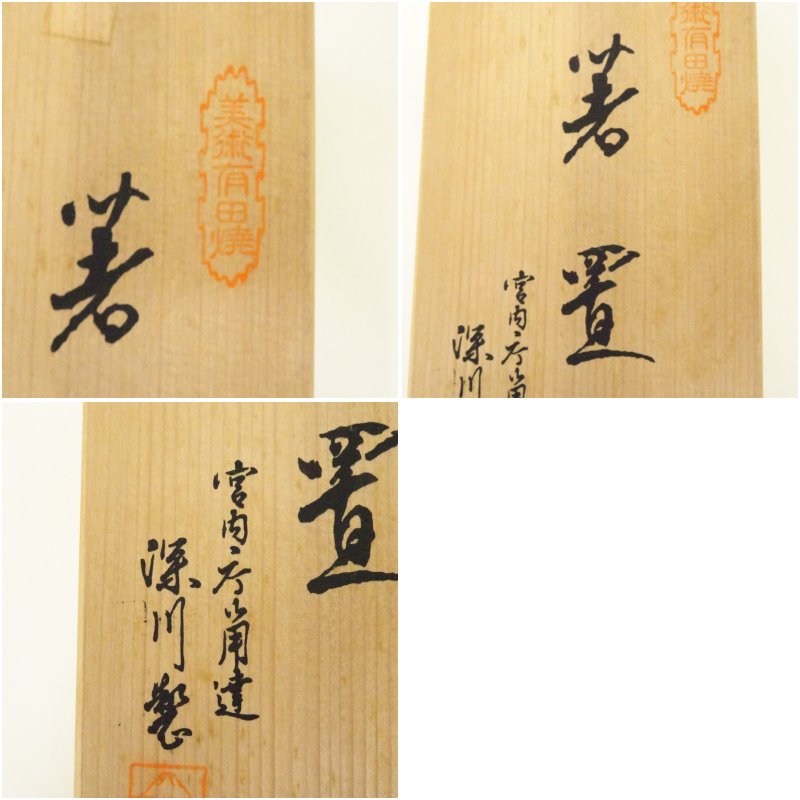 美術有田燒
箸
術有田燒
箸置
宮内庁御用
深川
置
宮内庁御用達
深川製